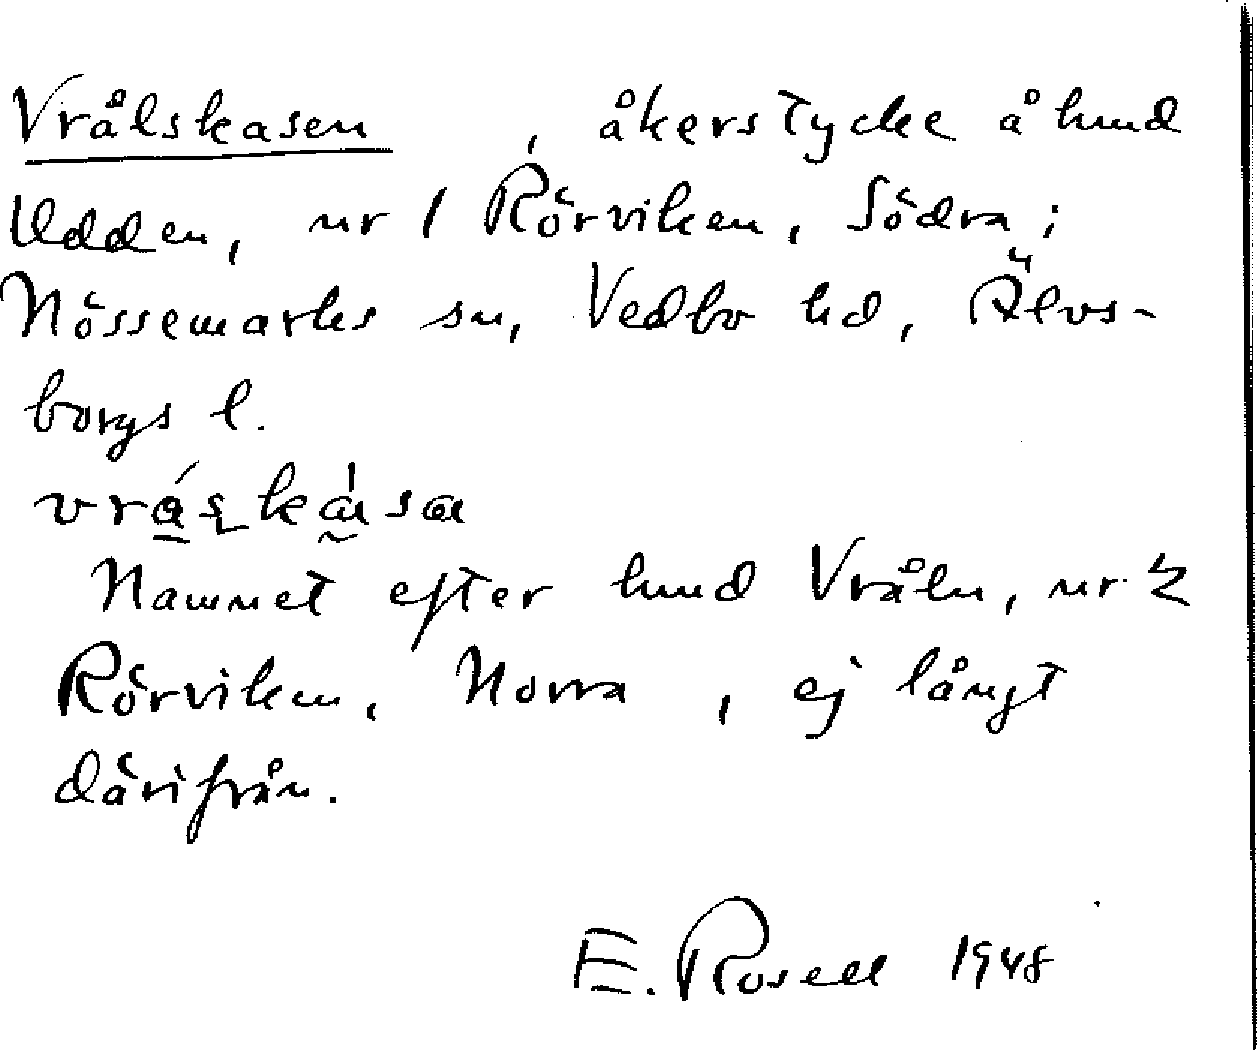 Vrålskasen, åkerstycke å hmd
Udden, nr 1 Rörviken, Södra i
Nössemarks sn, Vedbo hd, Älvs-
borgs l.
Namnet efter hmd Vråln, nr 2
Rörviken, Norra, ej långt
därifrån.
E. Rosell 1948